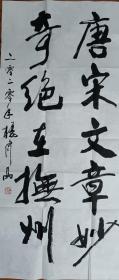 唐宋文章妙
奇绝在撫州
二零二零年